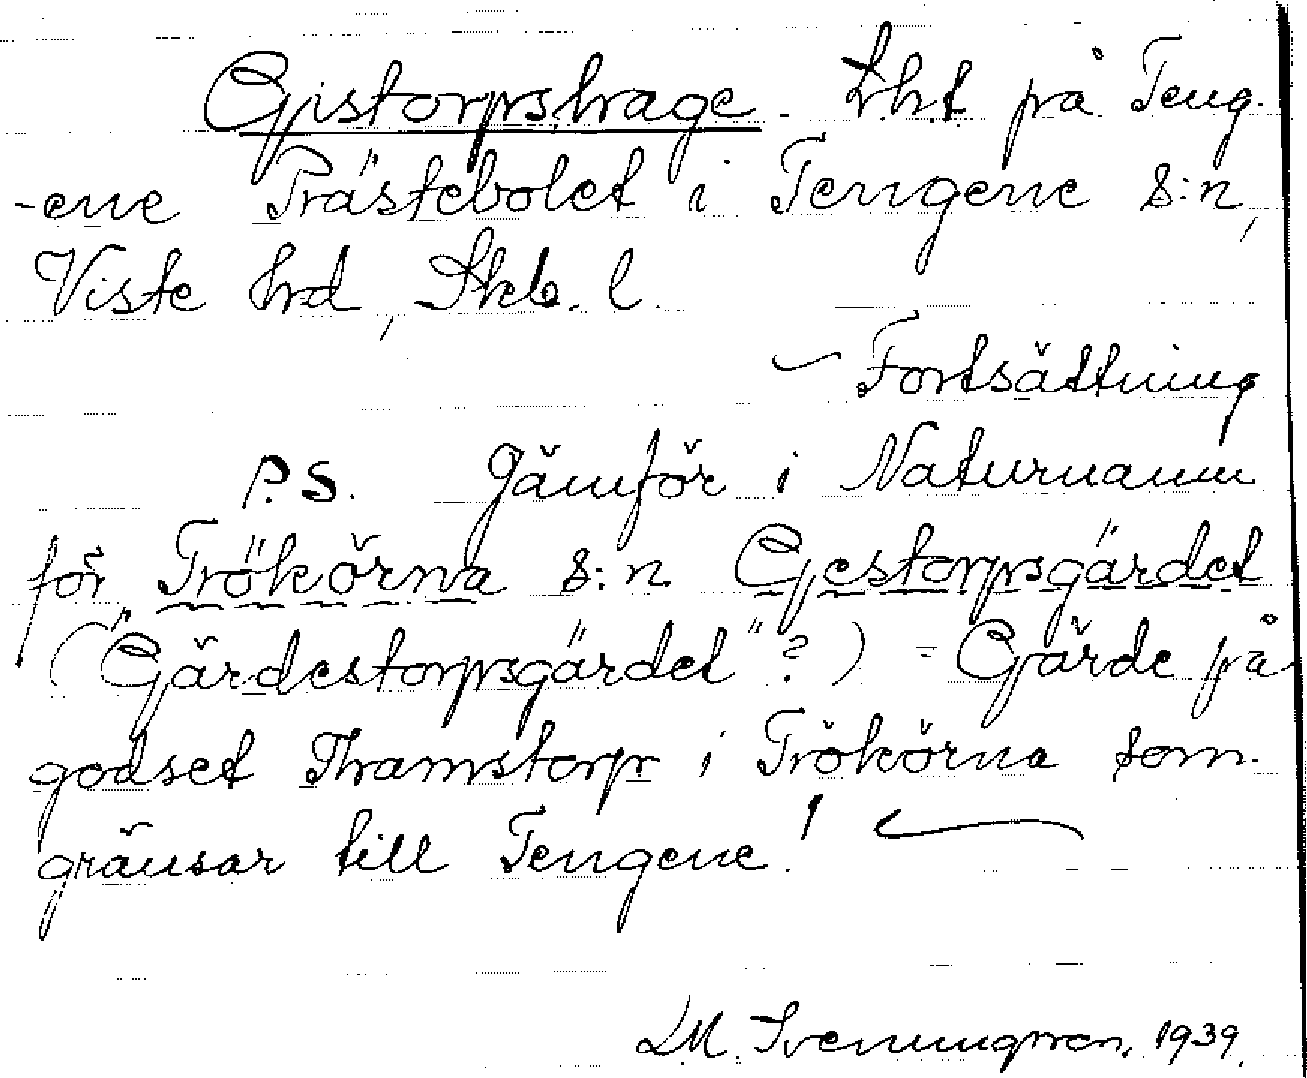 Gistorpshage. Lht på Teng-
-ene Prästebolet i Tengene s:n,
Viste hrd, Skb. l.
Fortsättning
P.S. Jämför i Naturnamn
för Trökörna s:n Gestorpsgärdet
("Gärdestorpsgärdet"?) - Gärde på
godset Thamstorp i Trökörna som
gränsar till Tengene!
LM. Svenungsson, 1939.